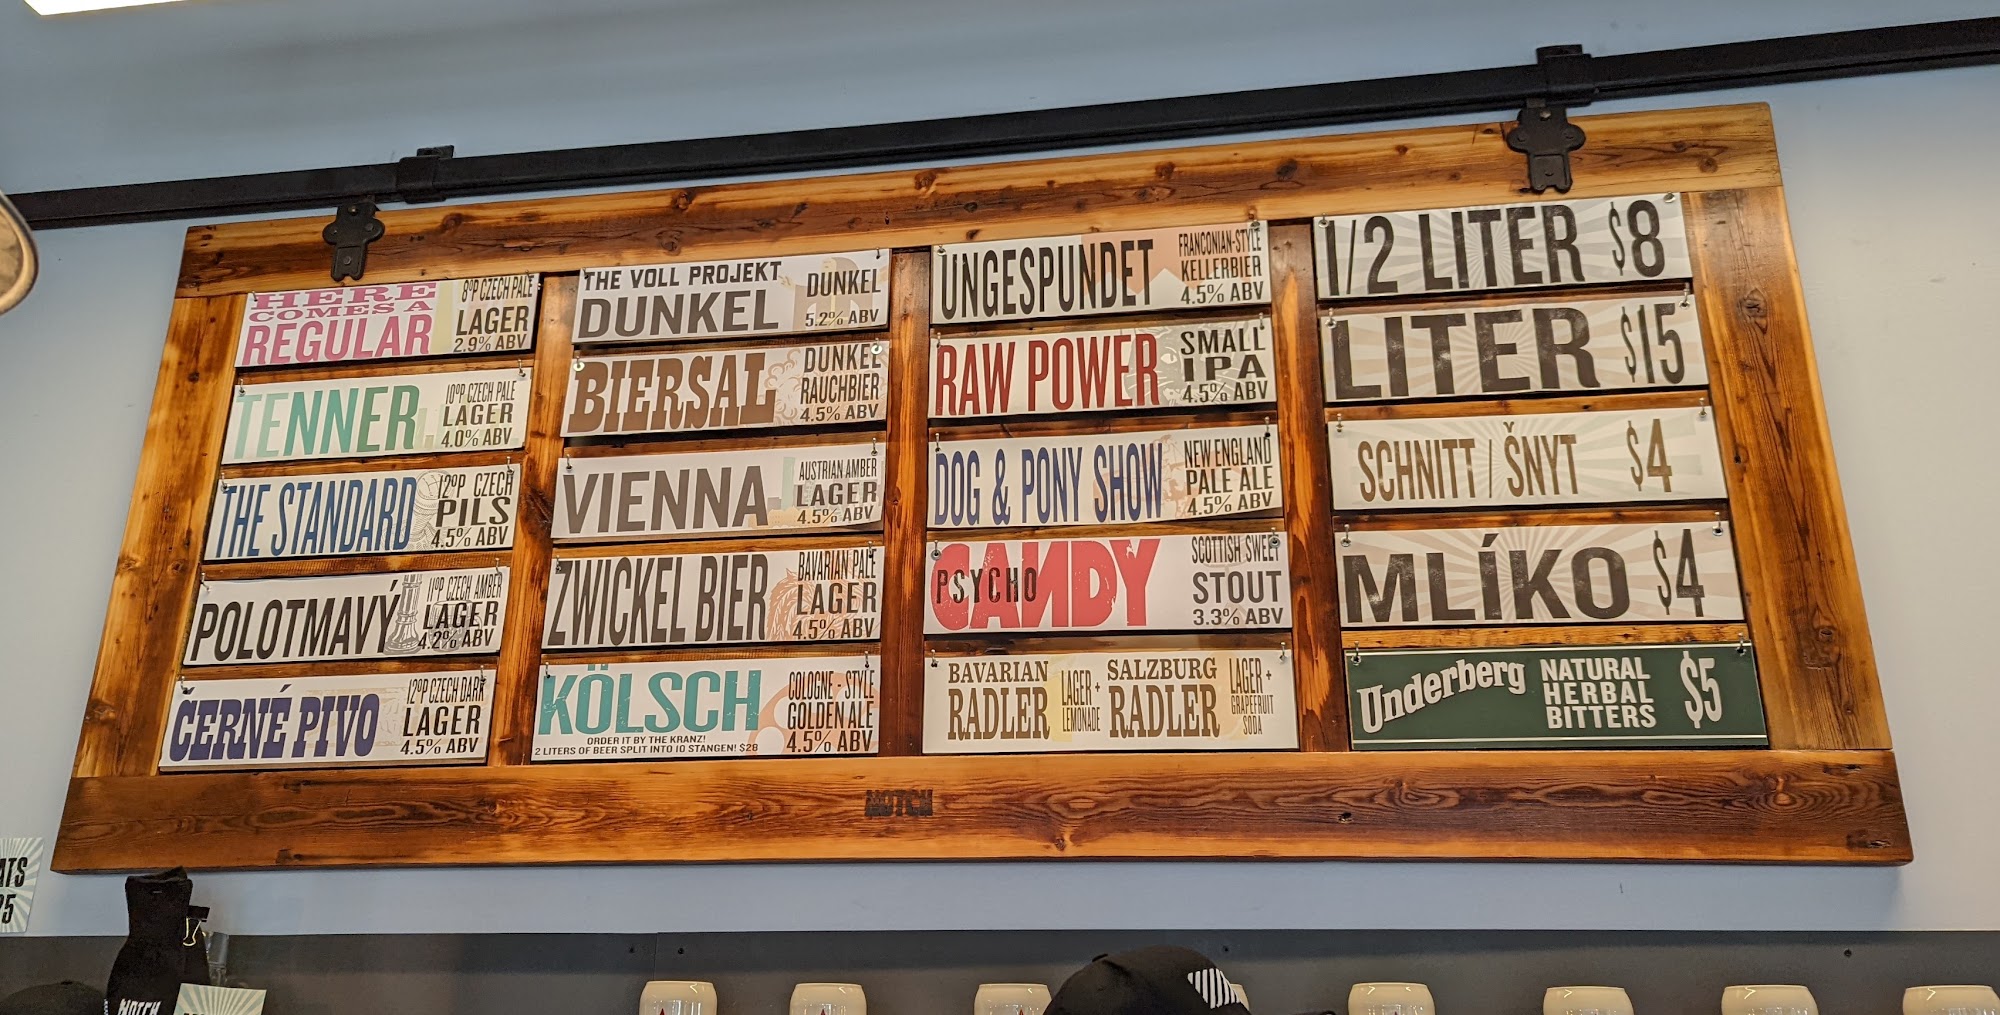 HERE
COMES A
REGULAR
8°P CZECH PALE
LAGER
2.9% ABV
TENNER
10°P CZECH PALE
LAGER
4.0% ABV
THE STANDARD
12°P CZECH
PILS
4.5% ABV
POLOTMAVÝ
11°P CZECH AMBER
LAGER
4.2% ABV
ČERNÉ PIVO
12°P CZECH DARK
LAGER
4.5% ABV
THE VOLL PROJEKT
DUNKEL
DUNKEL
5.2% ABV
BIERSAL
DUNKEL
RAUCHBIER
4.5% ABV
VIENNA
AUSTRIAN AMBER
LAGER
4.5% ABV
ZWICKEL BIER
BAVARIAN PALE
LAGER
4.5% ABV
KÖLSCH
COLOGNE-STYLE
GOLDEN ALE
4.5% ABV
ORDER IT BY THE KRANZ!
2 LITERS OF BEER SPLIT INTO 10 STANGEN! $28
UNGESPUNDET
FRANCONIAN-STYLE
KELLERBIER
4.5% ABV
RAW POWER
SMALL
IPA
4.5% ABV
DOG & PONY SHOW
NEW ENGLAND
PALE ALE
4.5% ABV
PSYCHO
CANDY
SCOTTISH SWEET
STOUT
3.3% ABV
BAVARIAN
RADLER
LAGER +
LEMONADE
SALZBURG
RADLER
LAGER +
GRAPEFRUIT
SODA
1/2 LITER $8
LITER $15
SCHNITT / ŠNYT $4
MLÍKO $4
Underberg
NATURAL
HERBAL
BITTERS
$5
NOTCH
NOTCH